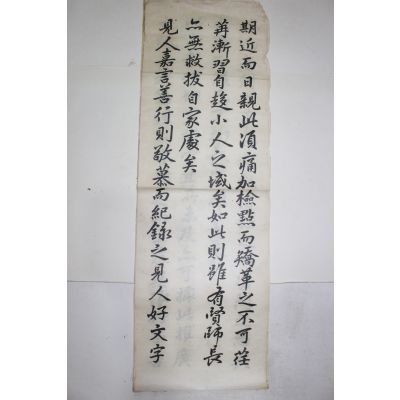 期近而日親此須痛加檢點而矯革之不可荏
苒漸習自趍小人之域矣如此則雖有賢師長
亦無救拔自家處矣
見人嘉言善行則敬慕而紀錄之見人好文字